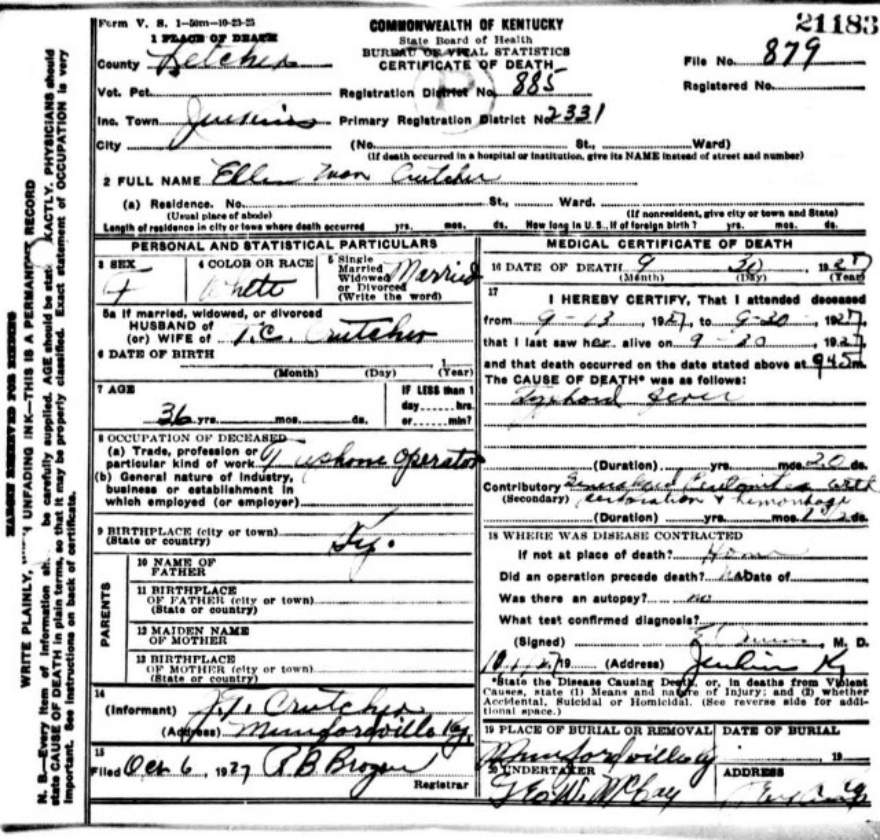 Form V. S. 1-50m-10-23-25
COMMONWEALTH OF KENTUCKY
State Board of Health
BUREAU OF VITAL STATISTICS
CERTIFICATE OF DEATH
21183
File No. 879
Registered No.
1 PLACE OF DEATH
County Letcher
Vot. Pct.
Registration District No. 885
Inc. Town Jenkins
Primary Registration District No. 2331
City
(No. St., Ward)
(If death occurred in a hospital or institution, give its NAME instead of street and number)
2 FULL NAME Ellen Crutcher
(a) Residence. No. St., Ward.
(Usual place of abode) (If nonresident, give city or town and State)
Length of residence in city or town where death occurred yrs. mos. ds. How long in U. S., if of foreign birth? yrs. mos. ds.
PERSONAL AND STATISTICAL PARTICULARS
3 SEX F
4 COLOR OR RACE White
5 Single Married Widowed or Divorced (Write the word) Married
5a If married, widowed, or divorced
HUSBAND of
(or) WIFE of T. C. Crutcher
6 DATE OF BIRTH
(Month) (Day) (Year)
7 AGE
36 yrs. mos. ds.
IF LESS than 1
day hrs.
or min?
8 OCCUPATION OF DECEASED
(a) Trade, profession or
particular kind of work Operator
(b) General nature of industry,
business or establishment in
which employed (or employer)
9 BIRTHPLACE (city or town)
(State or country) Ky.
PARENTS
10 NAME OF
FATHER
11 BIRTHPLACE
OF FATHER (city or town)
(State or country)
12 MAIDEN NAME
OF MOTHER
13 BIRTHPLACE
OF MOTHER (city or town)
(State or country)
14
(Informant) J. T. Crutcher
(Address) Munfordville Ky.
15
Filed Oct 6, 1927 R B Brogan
Registrar
MEDICAL CERTIFICATE OF DEATH
16 DATE OF DEATH 9 30, 1927
(Month) (Day) (Year)
17
I HEREBY CERTIFY, That I attended deceased
from 9-13, 1927, to 9-30, 1927,
that I last saw her alive on 9-30, 1927,
and that death occurred on the date stated above at 945 m.
The CAUSE OF DEATH* was as follows:
Typhoid Fever
(Duration) yrs. mos. 20 ds.
Contributory Generalized Peritonitis with
(Secondary) perforation & hemorrhage
(Duration) yrs. mos. ds.
18 WHERE WAS DISEASE CONTRACTED
If not at place of death? Home
Did an operation precede death? No Date of
Was there an autopsy? no
What test confirmed diagnosis?
(Signed) , M. D.
19 (Address) Jenkins Ky
*State the Disease Causing Death, or, in deaths from Violent
Causes, state (1) Means and nature of Injury; and (2) whether
Accidental, Suicidal or Homicidal. (See reverse side for addi-
tional space.)
19 PLACE OF BURIAL OR REMOVAL
Munfordville Ky
DATE OF BURIAL
, 19
20 UNDERTAKER
Geo. W. McCay
ADDRESS
MARGIN RESERVED FOR BINDING
WRITE PLAINLY, UNFADING INK—THIS IS A PERMANENT RECORD
N. B.—Every item of information be carefully supplied. AGE should be EXACTLY. PHYSICIANS should
state CAUSE OF DEATH in plain terms, so that it may be properly classified. Exact statement of OCCUPATION is very
important. See instructions on back of certificate.